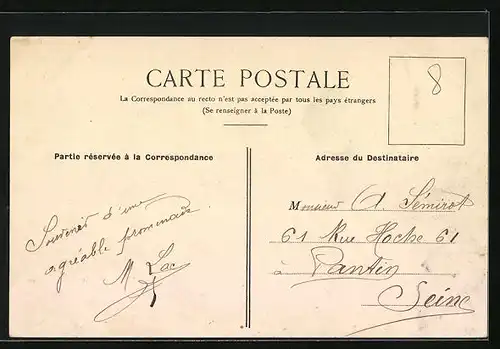 CARTE POSTALE
La Correspondance au recto n'est pas acceptée par tous les pays étrangers
(Se renseigner à la Poste)
8
Partie réservée à la Correspondance
Adresse du Destinataire
Souvenir d'une
agréable promenade.
M Lac
Monsieur A. Sémirot
61 Rue Hoche 61
à Pantin
Seine